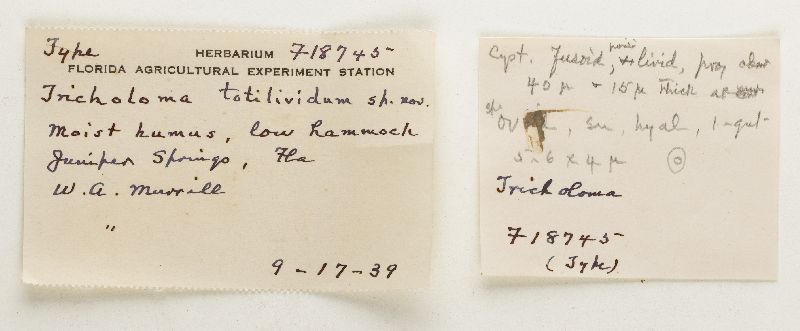 Type HERBARIUM F18745
FLORIDA AGRICULTURAL EXPERIMENT STATION
Tricholoma totilividum sp. nov.
Moist humus, low hammock
Juniper Springs, Fla
W. A. Murrill
"
9-17-39
Cyst. fusoid, livid,
40 μ × 15 μ thick
sm, hyal, 1-gut
5-6 x 4 μ
Tricholoma
F18745
(Type)